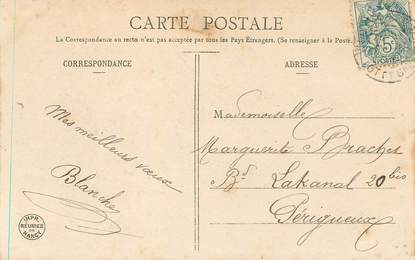 CARTE POSTALE
La Correspondance au recto n'est pas acceptée par tous les Pays Étrangers. (Se renseigner à la Poste.)
CORRESPONDANCE
ADRESSE
Mes meilleurs vœux
Blanche
Mademoiselle
Marguerite Braches
Bd Lakanal 20 bis
Périgueux
IMPR.
RÉUNIES
DE
NANCY
5